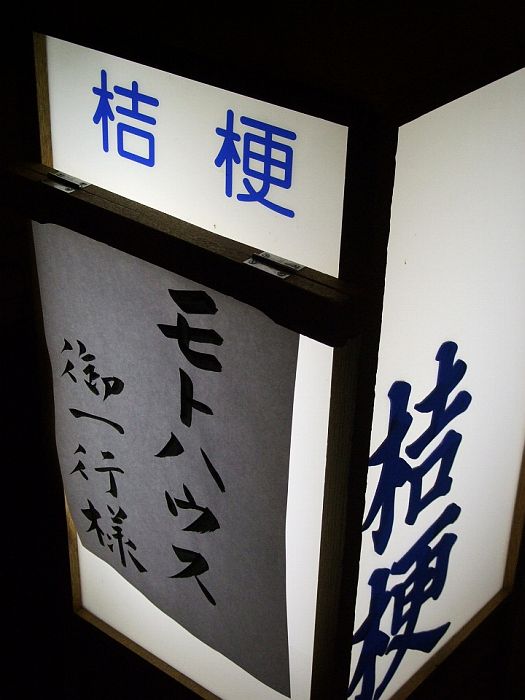 桔梗
モトハウス
御一行様
桔梗